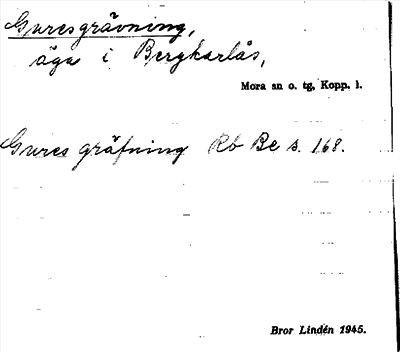 Guresgrävning,
äga i Bergkarlås,
Mora sn o. tg, Kopp. l.
Gures gräfning Rb Be s. 168.
Bror Lindén 1945.